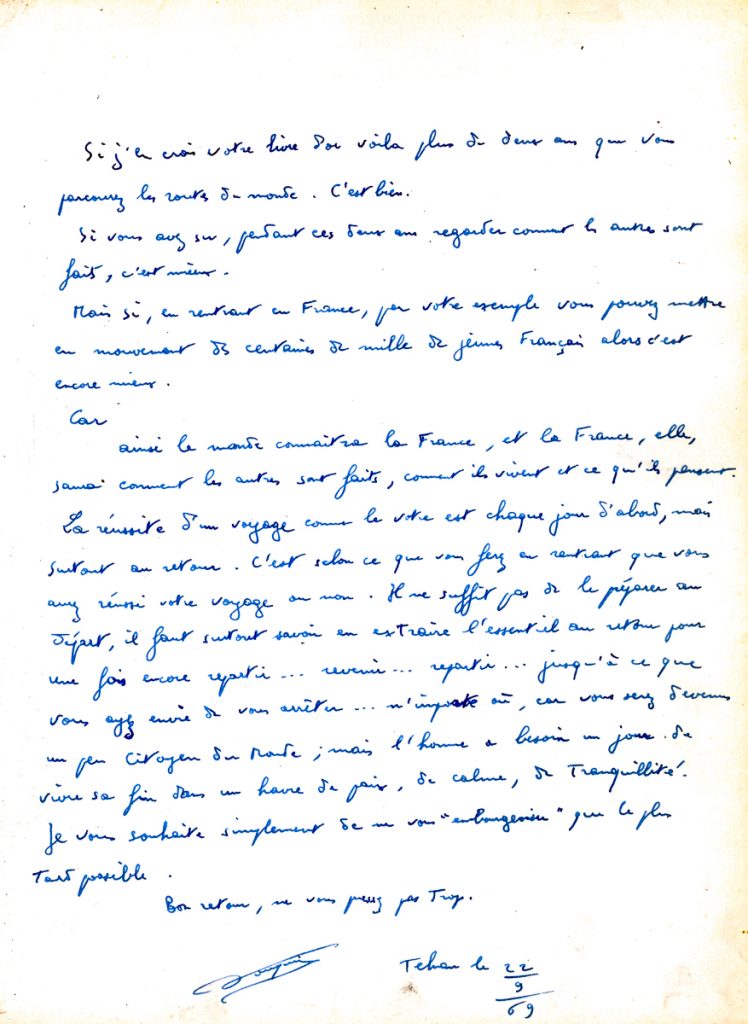 Si j'en crois votre livre d'or voila plus de deux ans que vous
parcourez les routes du monde. C'est bien.
Si vous avez su, pendant ces deux ans regarder comment les autres sont
faits, c'est mieux.
Mais si, en rentrant en France, par votre exemple vous pouvez mettre
en mouvement des centaines de mille de jeunes Français alors c'est
encore mieux.
Car
ainsi le monde connaitra la France, et la France, elle,
saura comment les autres sont faits, comment ils vivent et ce qu'ils pensent.
La réussite d'un voyage comme le votre est chaque jour d'abord, mais
surtout au retour. C'est selon ce que vous ferez en rentrant que vous
aurez réussi votre voyage ou non. Il ne suffit pas de le préparer au
départ, il faut surtout savoir en extraire l'essentiel au retour pour
une fois encore repartir ... revenir ... repartir ... jusqu'à ce que
vous ayez envie de vous arrêter ... n'importe où, car vous serez devenus
un peu Citoyen du Monde ; mais l'homme a besoin un jour de
vivre sa fin dans un havre de paix, de calme, de Tranquillité.
Je vous souhaite simplement de ne vous "embourgeoiser" que le plus
tard possible.
Bon retour, ne vous pressez pas Trop.
Teheran le 22
9
69